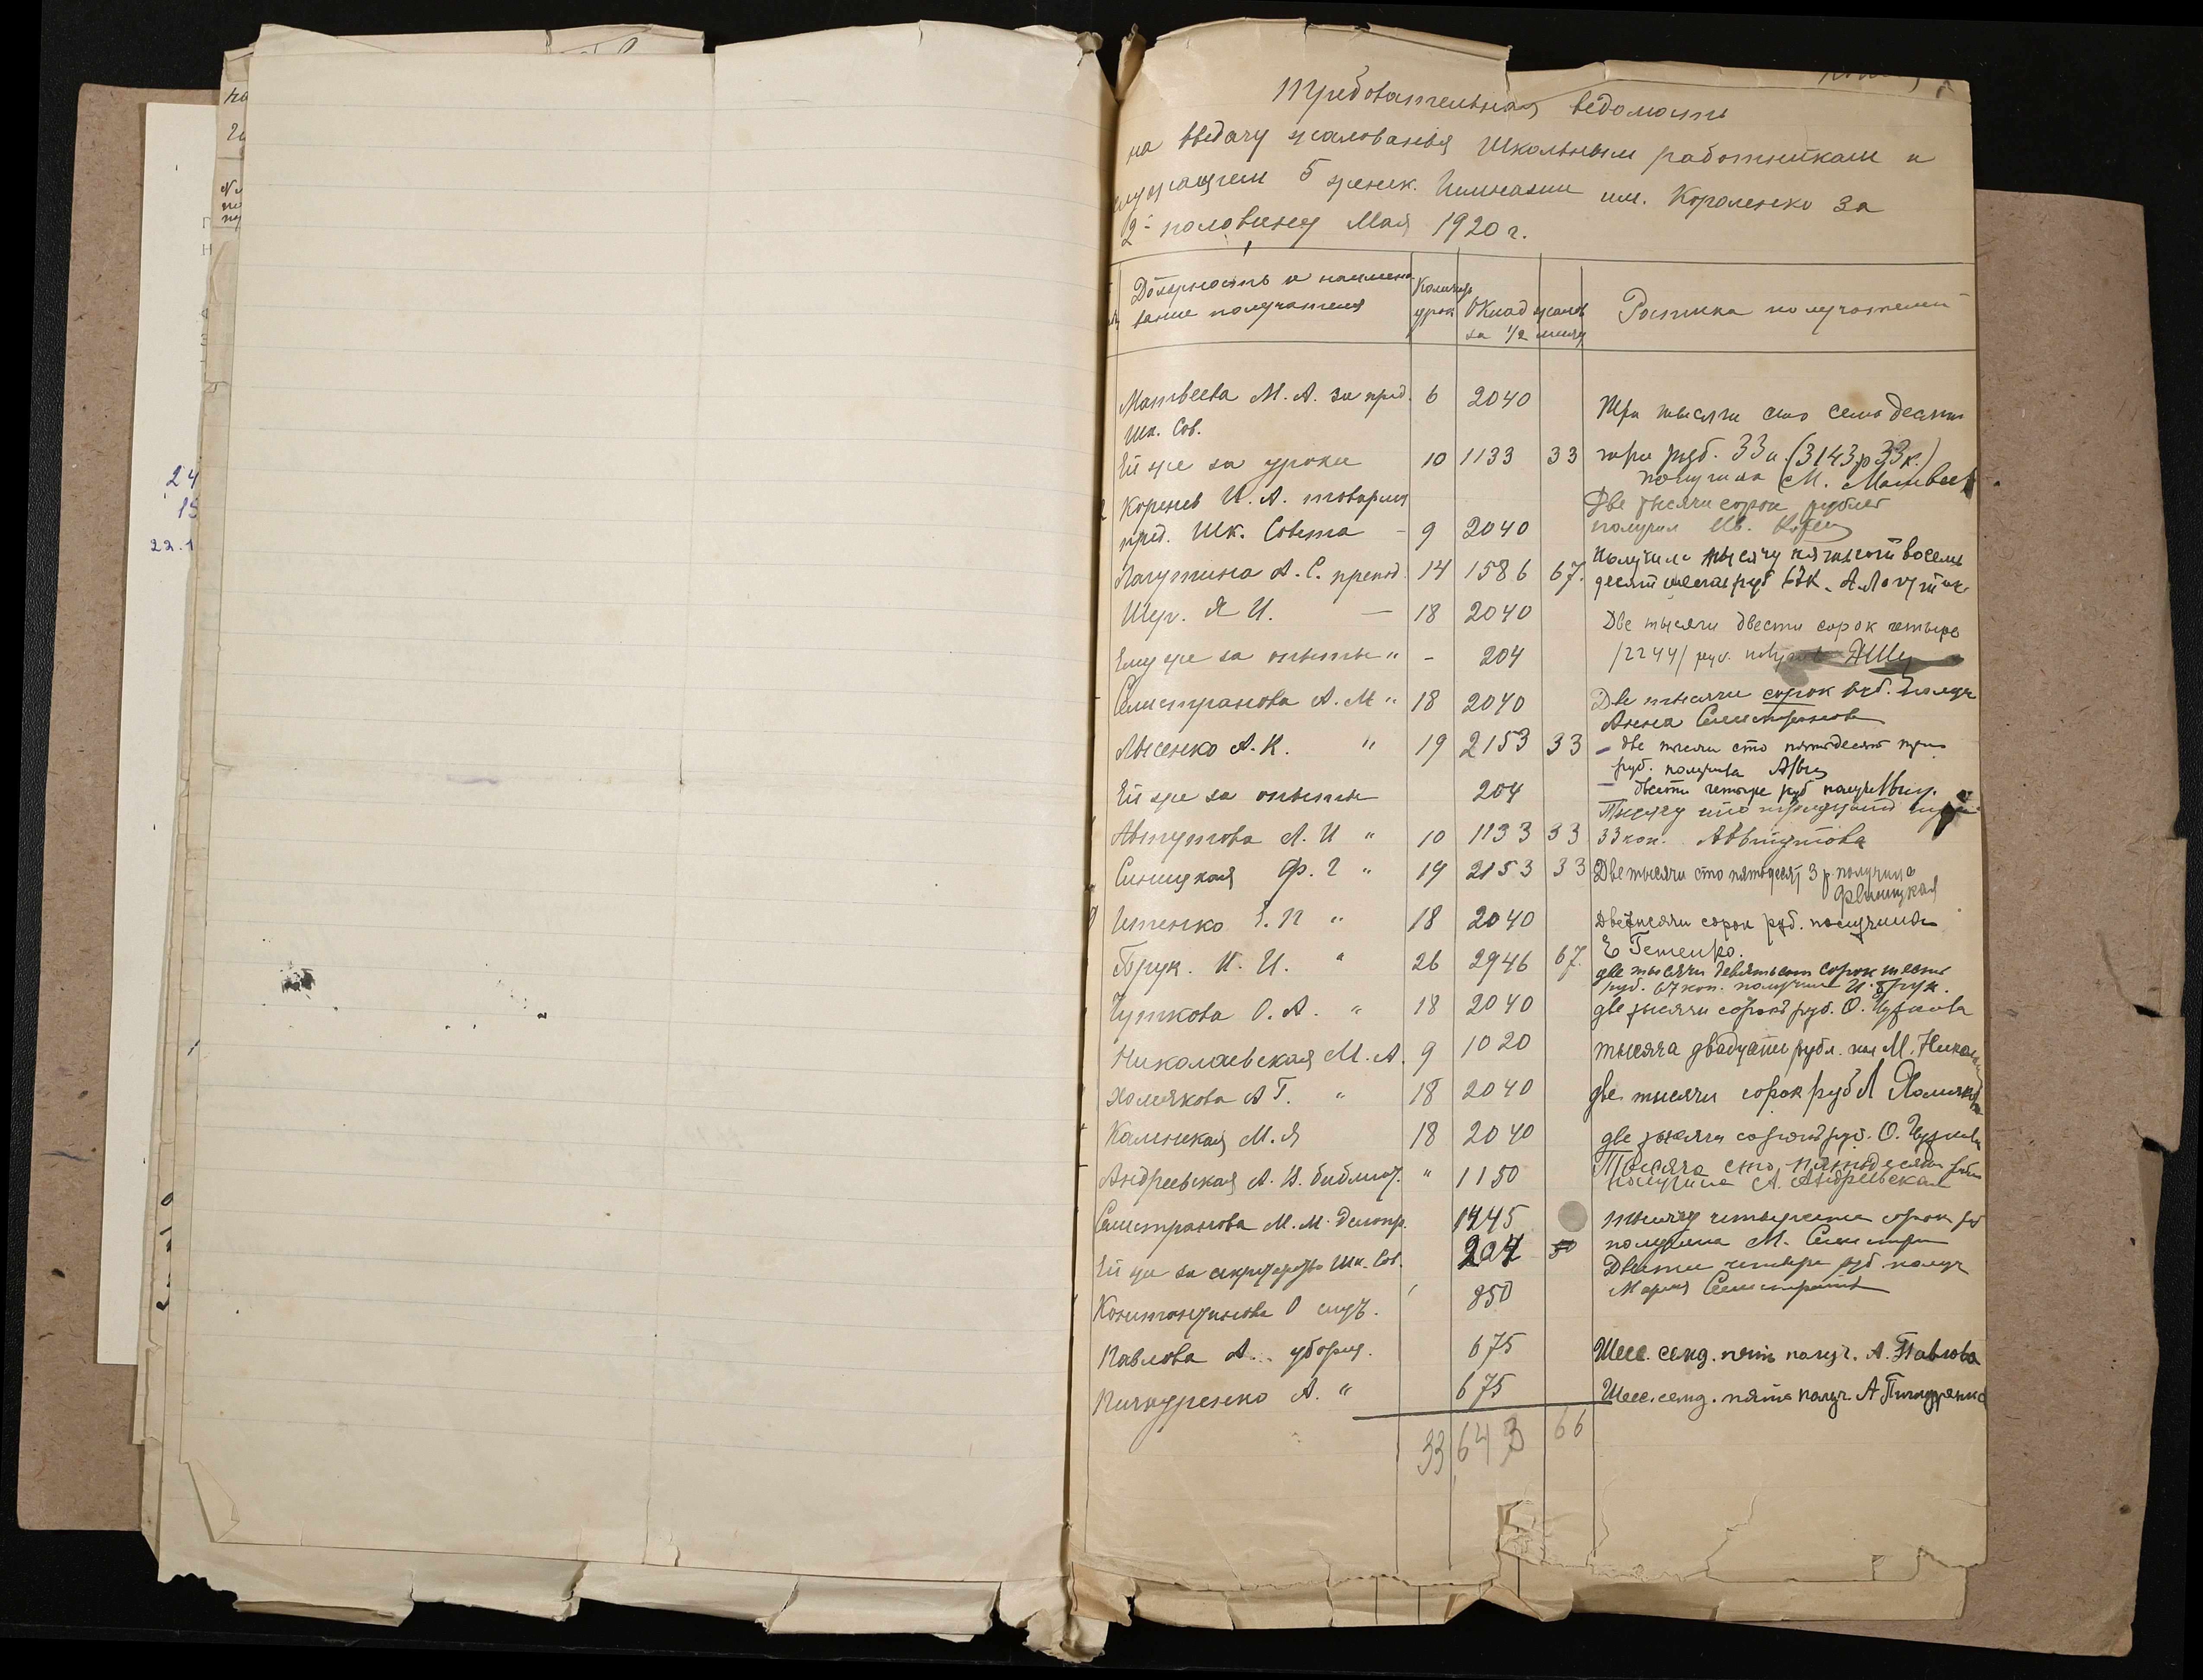 Требовательная ведомость
на выдачу жалованья школьным работникам и
служащим 5 женск. Гимназии им. Короленко за
2-ю половину Мая 1920 г.
Должность и наимено-
вание получателя
Количество урок
Оклад жалов за 1/2 месяц
Росписка получателей
Матвеева М. А. за пред. 6 2040
Шк. Сов.
Три тысячи сто семьдесят
Ей же за уроки 10 1133 33 три руб. 33 к. (3143 р 33 к.)
получила М. Матвеев
Коренев И. А. товарищ
Две тысячи сорок рублей
пред. Шк. Совета - 9 2040 получил Ив.
Лагутина А. С. препод. 14 1586 67. Получила тысячу пятьсот восемь
десят шесть руб 67 к.
Шур. Я И. — 18 2040 Две тысячи двести сорок четыре
Ему же за опыты " - 204 /2244/ руб.
Селистранова А. М " 18 2040 Две тысячи сорок руб.
Анна Селистранов
Лысенко А. К. " 19 2153 33 две тысячи сто пятьдесят три
руб. получила
Ей же за опыты 204 двести четыре руб
Тысячу сто тридцать три
Августова А. И " 10 1133 33 33 коп. А Августова
Синицкая Ф. Г " 19 2153 33 Две тысячи сто пятьдесят 3 р. получила
Ф Синицкая
18 2040 Две тысячи сорок руб. получила
Брук. И. И. " 26 2946 67. две тысячи девятьсот сорок шесть
руб. 67 коп. получил И. Брук.
Чуткова О. А. " 18 2040 две тысячи сорок руб. О. Чуткова
Николаевская М. А. 9 1020 тысяча двадцать рубл. М. Никола
Холмякова А Г. " 18 2040 две тысячи сорок руб А
Каменская М. Я 18 2040 две тысячи сорок руб. О. Чуткова
Андреевская А. В. библиот. " 1150 Тысяча сто пятьдесят
получила А. Андреевская
Селистранова М. М. делопр. 1445 тысячу четыреста сорок
получила М. Селистра
Ей же за секретарство Шк. Сов. 204 50 Двести четыре руб получ
Мария Селистранов
Константинова О служ. 850
Павлова А. уборщ. 675 Шес. семд. пять получ. А. Павлова
675 Шес. семд. пять получ А
33643 66
24
22.1